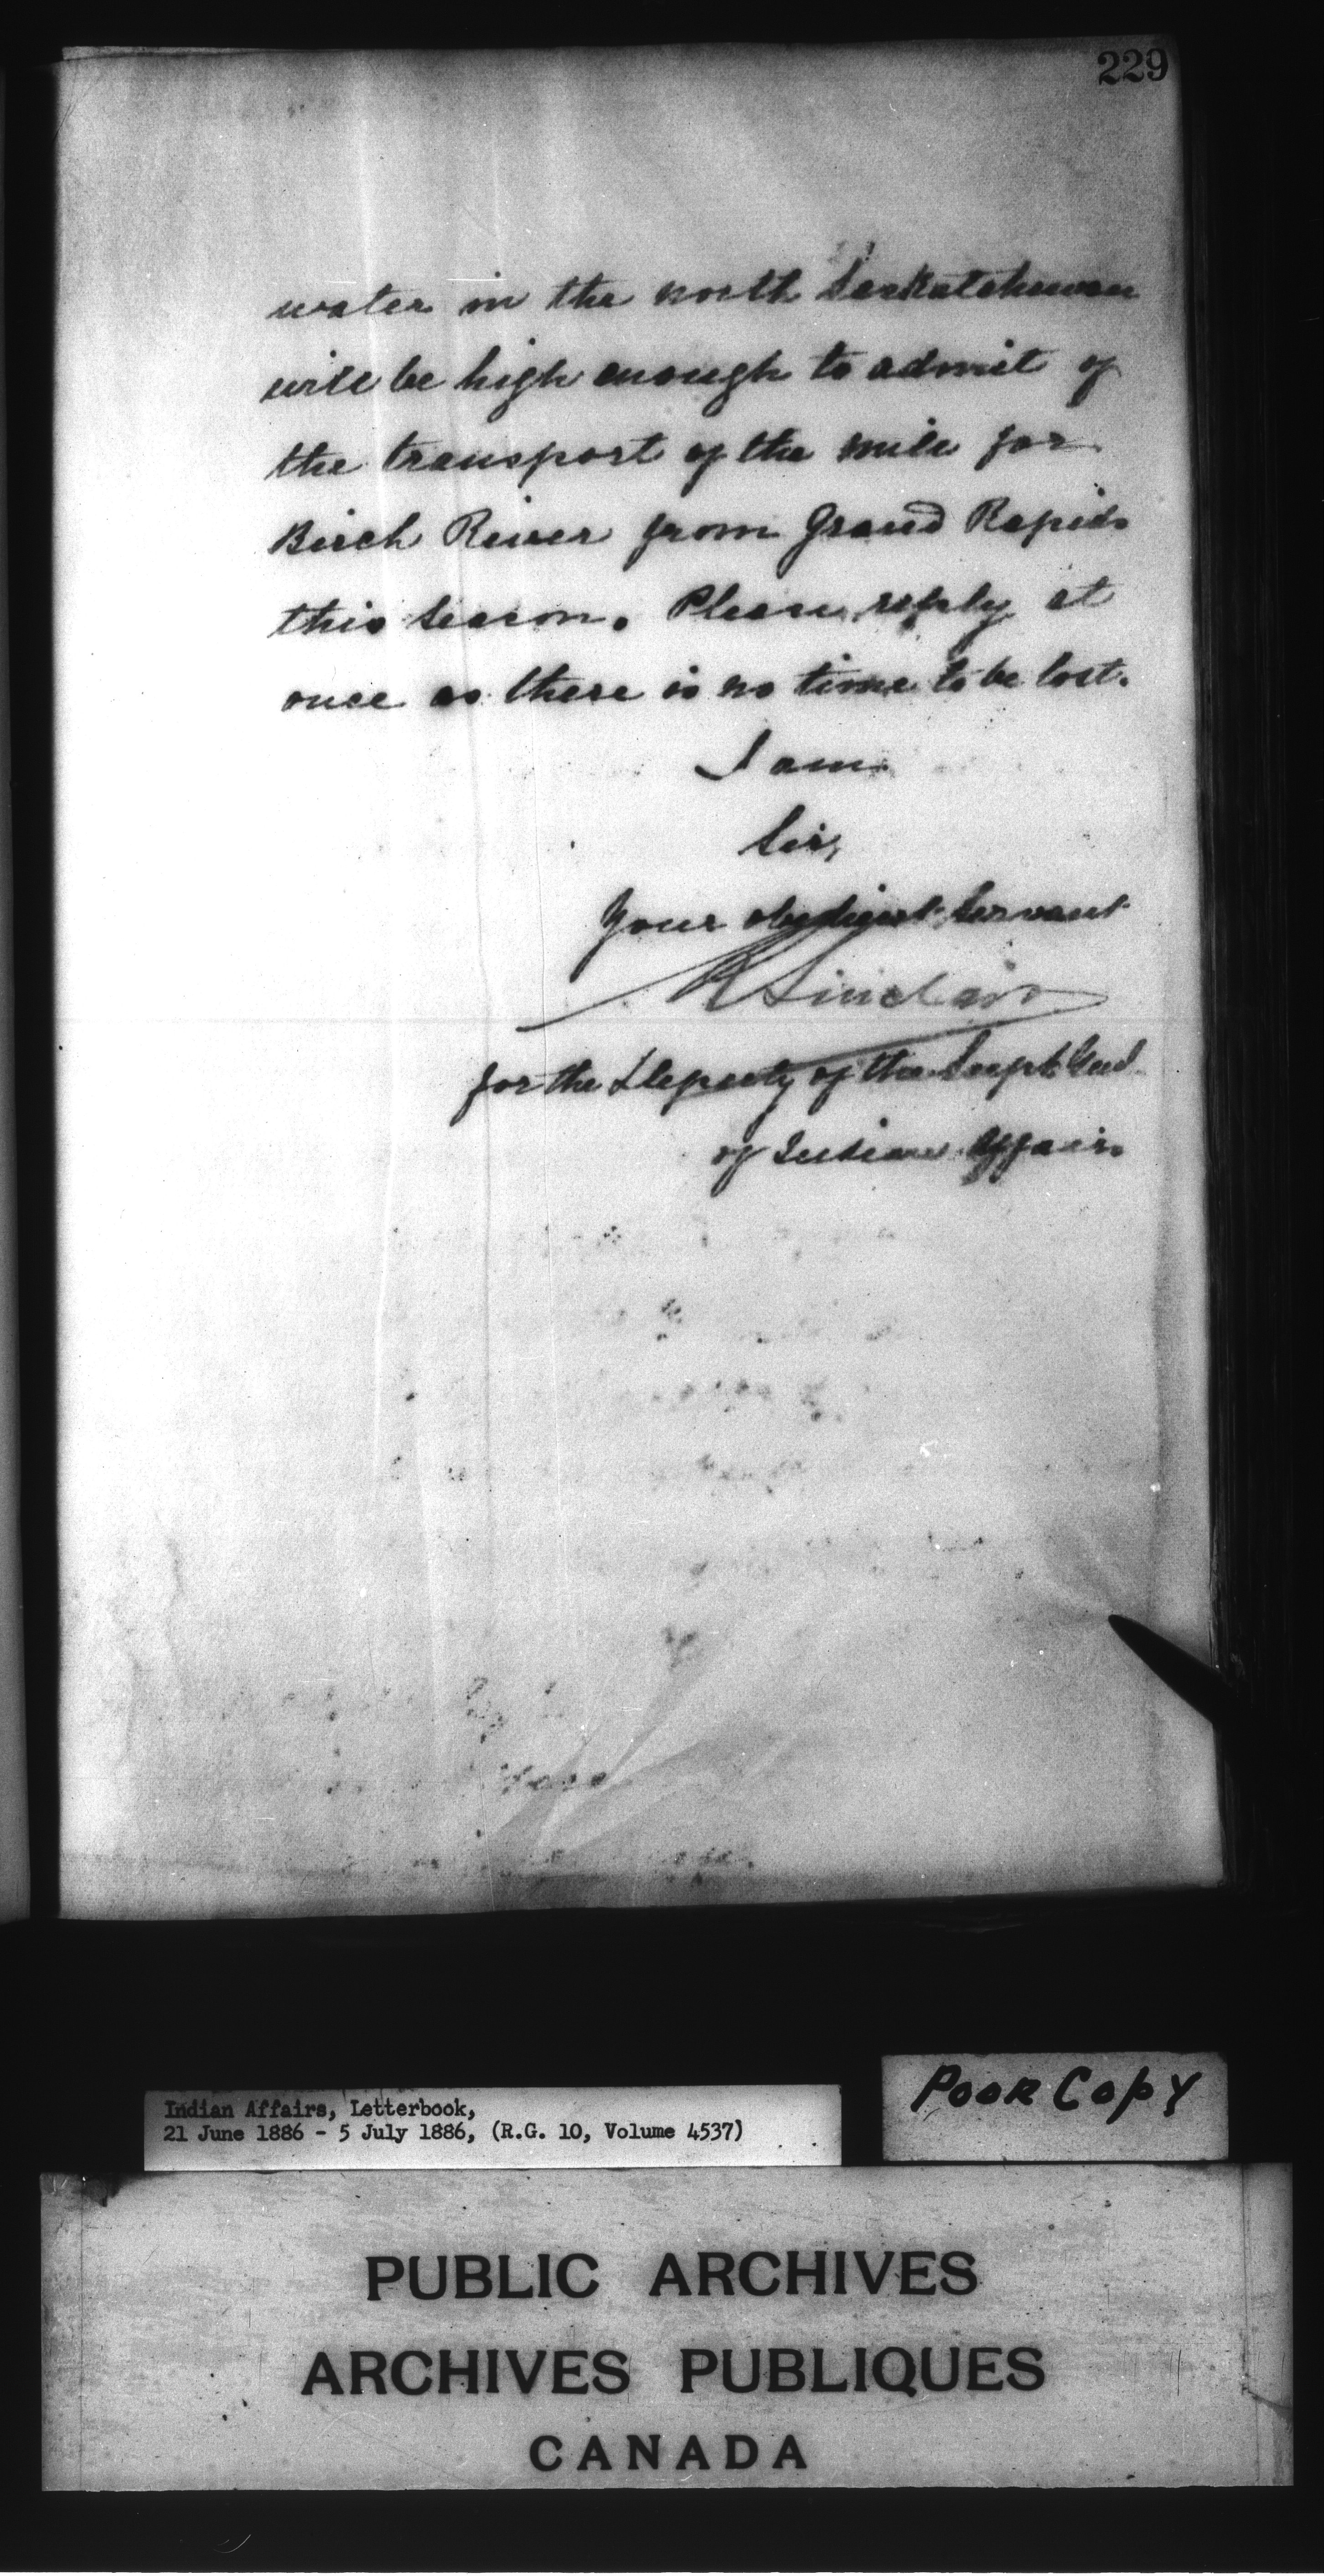 229
water in the north Saskatchewan
will be high enough to admit of
the transport of the mill for
Birch River from Grand Rapids
this season. Please reply at
once as there is no time to be lost.
I am
Sir,
Your obedient Servant
R Sinclair
for the Deputy of the Supt. Genl.
of Indian Affairs
Poor Copy
Indian Affairs, Letterbook,
21 June 1886 - 5 July 1886, (R.G. 10, Volume 4537)
PUBLIC ARCHIVES
ARCHIVES PUBLIQUES
CANADA